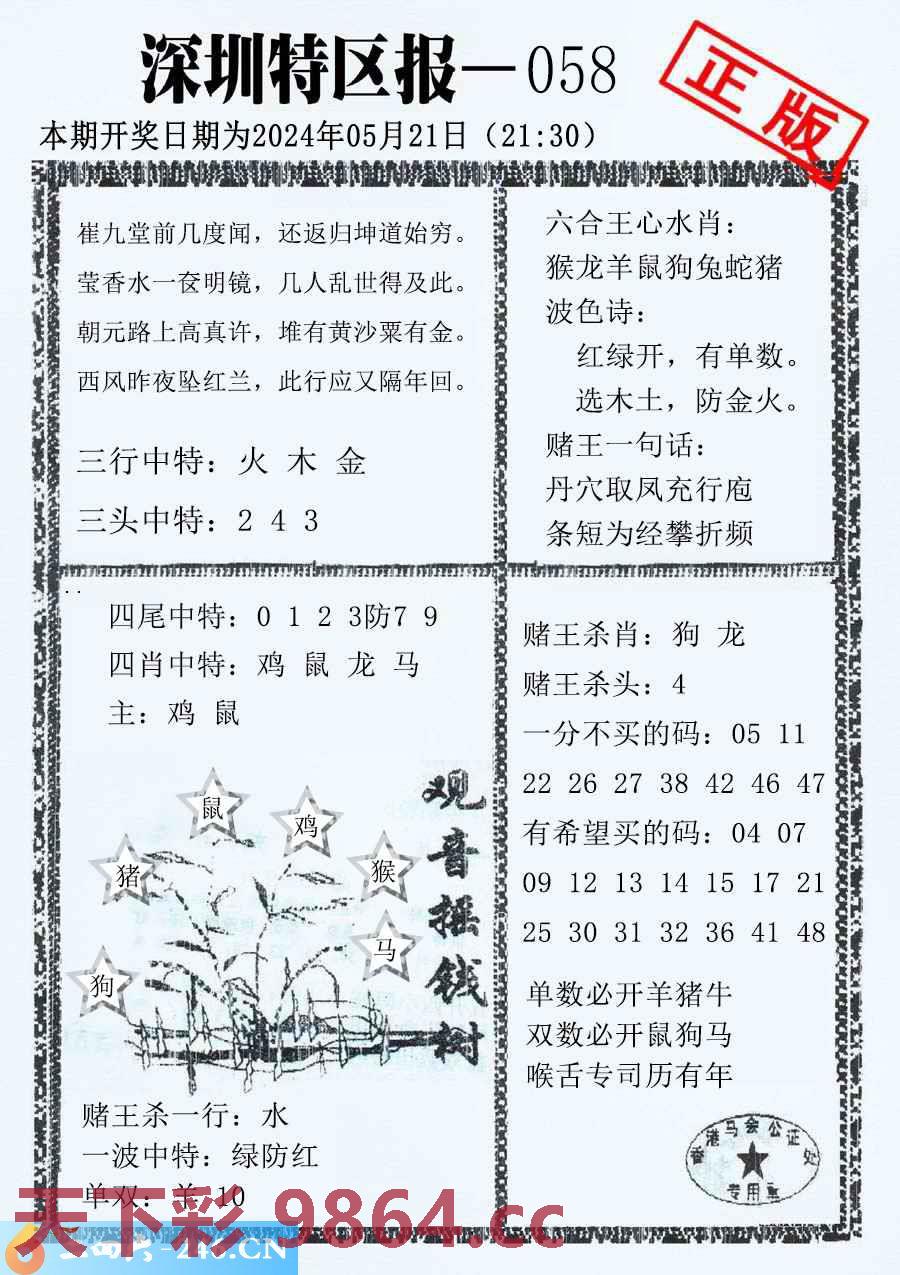 深圳特区报—058
正版
本期开奖日期为2024年05月21日（21:30）
崔九堂前几度闻，还返归坤道始穷。
莹香水一奁明镜，几人乱世得及此。
朝元路上高真许，堆有黄沙粟有金。
西风昨夜坠红兰，此行应又隔年回。
三行中特：火 木 金
三头中特：2 4 3
六合王心水肖：
猴龙羊鼠狗兔蛇猪
波色诗：
红绿开，有单数。
选木土，防金火。
赌王一句话：
丹穴取凤充行庖
条短为经攀折频
四尾中特：0 1 2 3防7 9
四肖中特：鸡 鼠 龙 马
主：鸡 鼠
鼠
鸡
猪
猴
马
狗
观音摇钱树
赌王杀一行：水
一波中特：绿防红
单双：羊 10
赌王杀肖：狗 龙
赌王杀头：4
一分不买的码：05 11
22 26 27 38 42 46 47
有希望买的码：04 07
09 12 13 14 15 17 21
25 30 31 32 36 41 48
单数必开羊猪牛
双数必开鼠狗马
喉舌专司历有年
香港马会公证处
专用章
天下彩 9864.cc